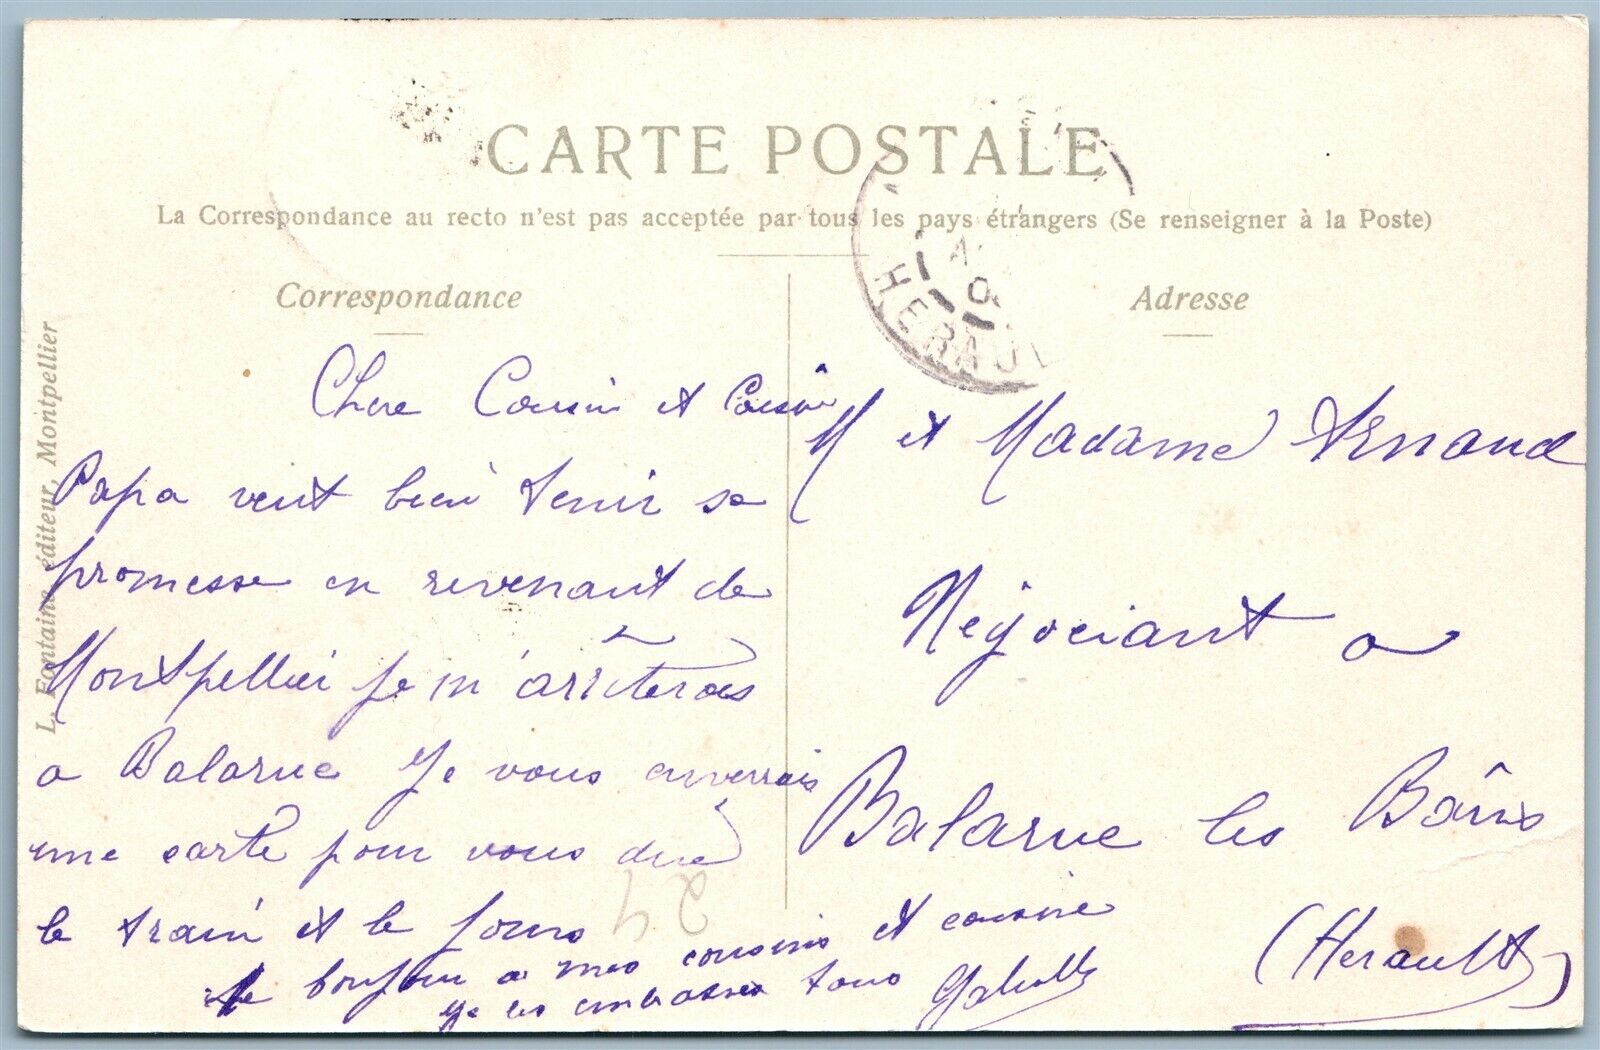 CARTE POSTALE
La Correspondance au recto n'est pas acceptée par tous les pays étrangers (Se renseigner à la Poste)
Correspondance
Adresse
L. Fontaine éditeur, Montpellier
HERAUL
Chere Cousin et Cousine
Papa veut bien tenir sa
promesse en revenant de
Montpellier je m'arrêterais
a Balaruc Je vous enverrais
une carte pour vous dire
le train et le jour
le bonjour a mes cousins et cousine
je les embrasses tous
24
M et Madame Arnaud
Négociant a
Balaruc les Bains
(Herault)